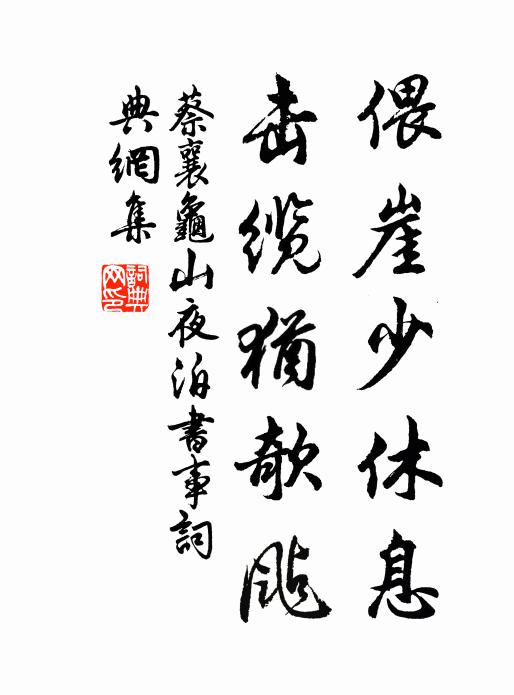 偎崖少休息
击缆猶欹飐
蔡襄龜山夜泊書事詞
典網集
詞典
网印